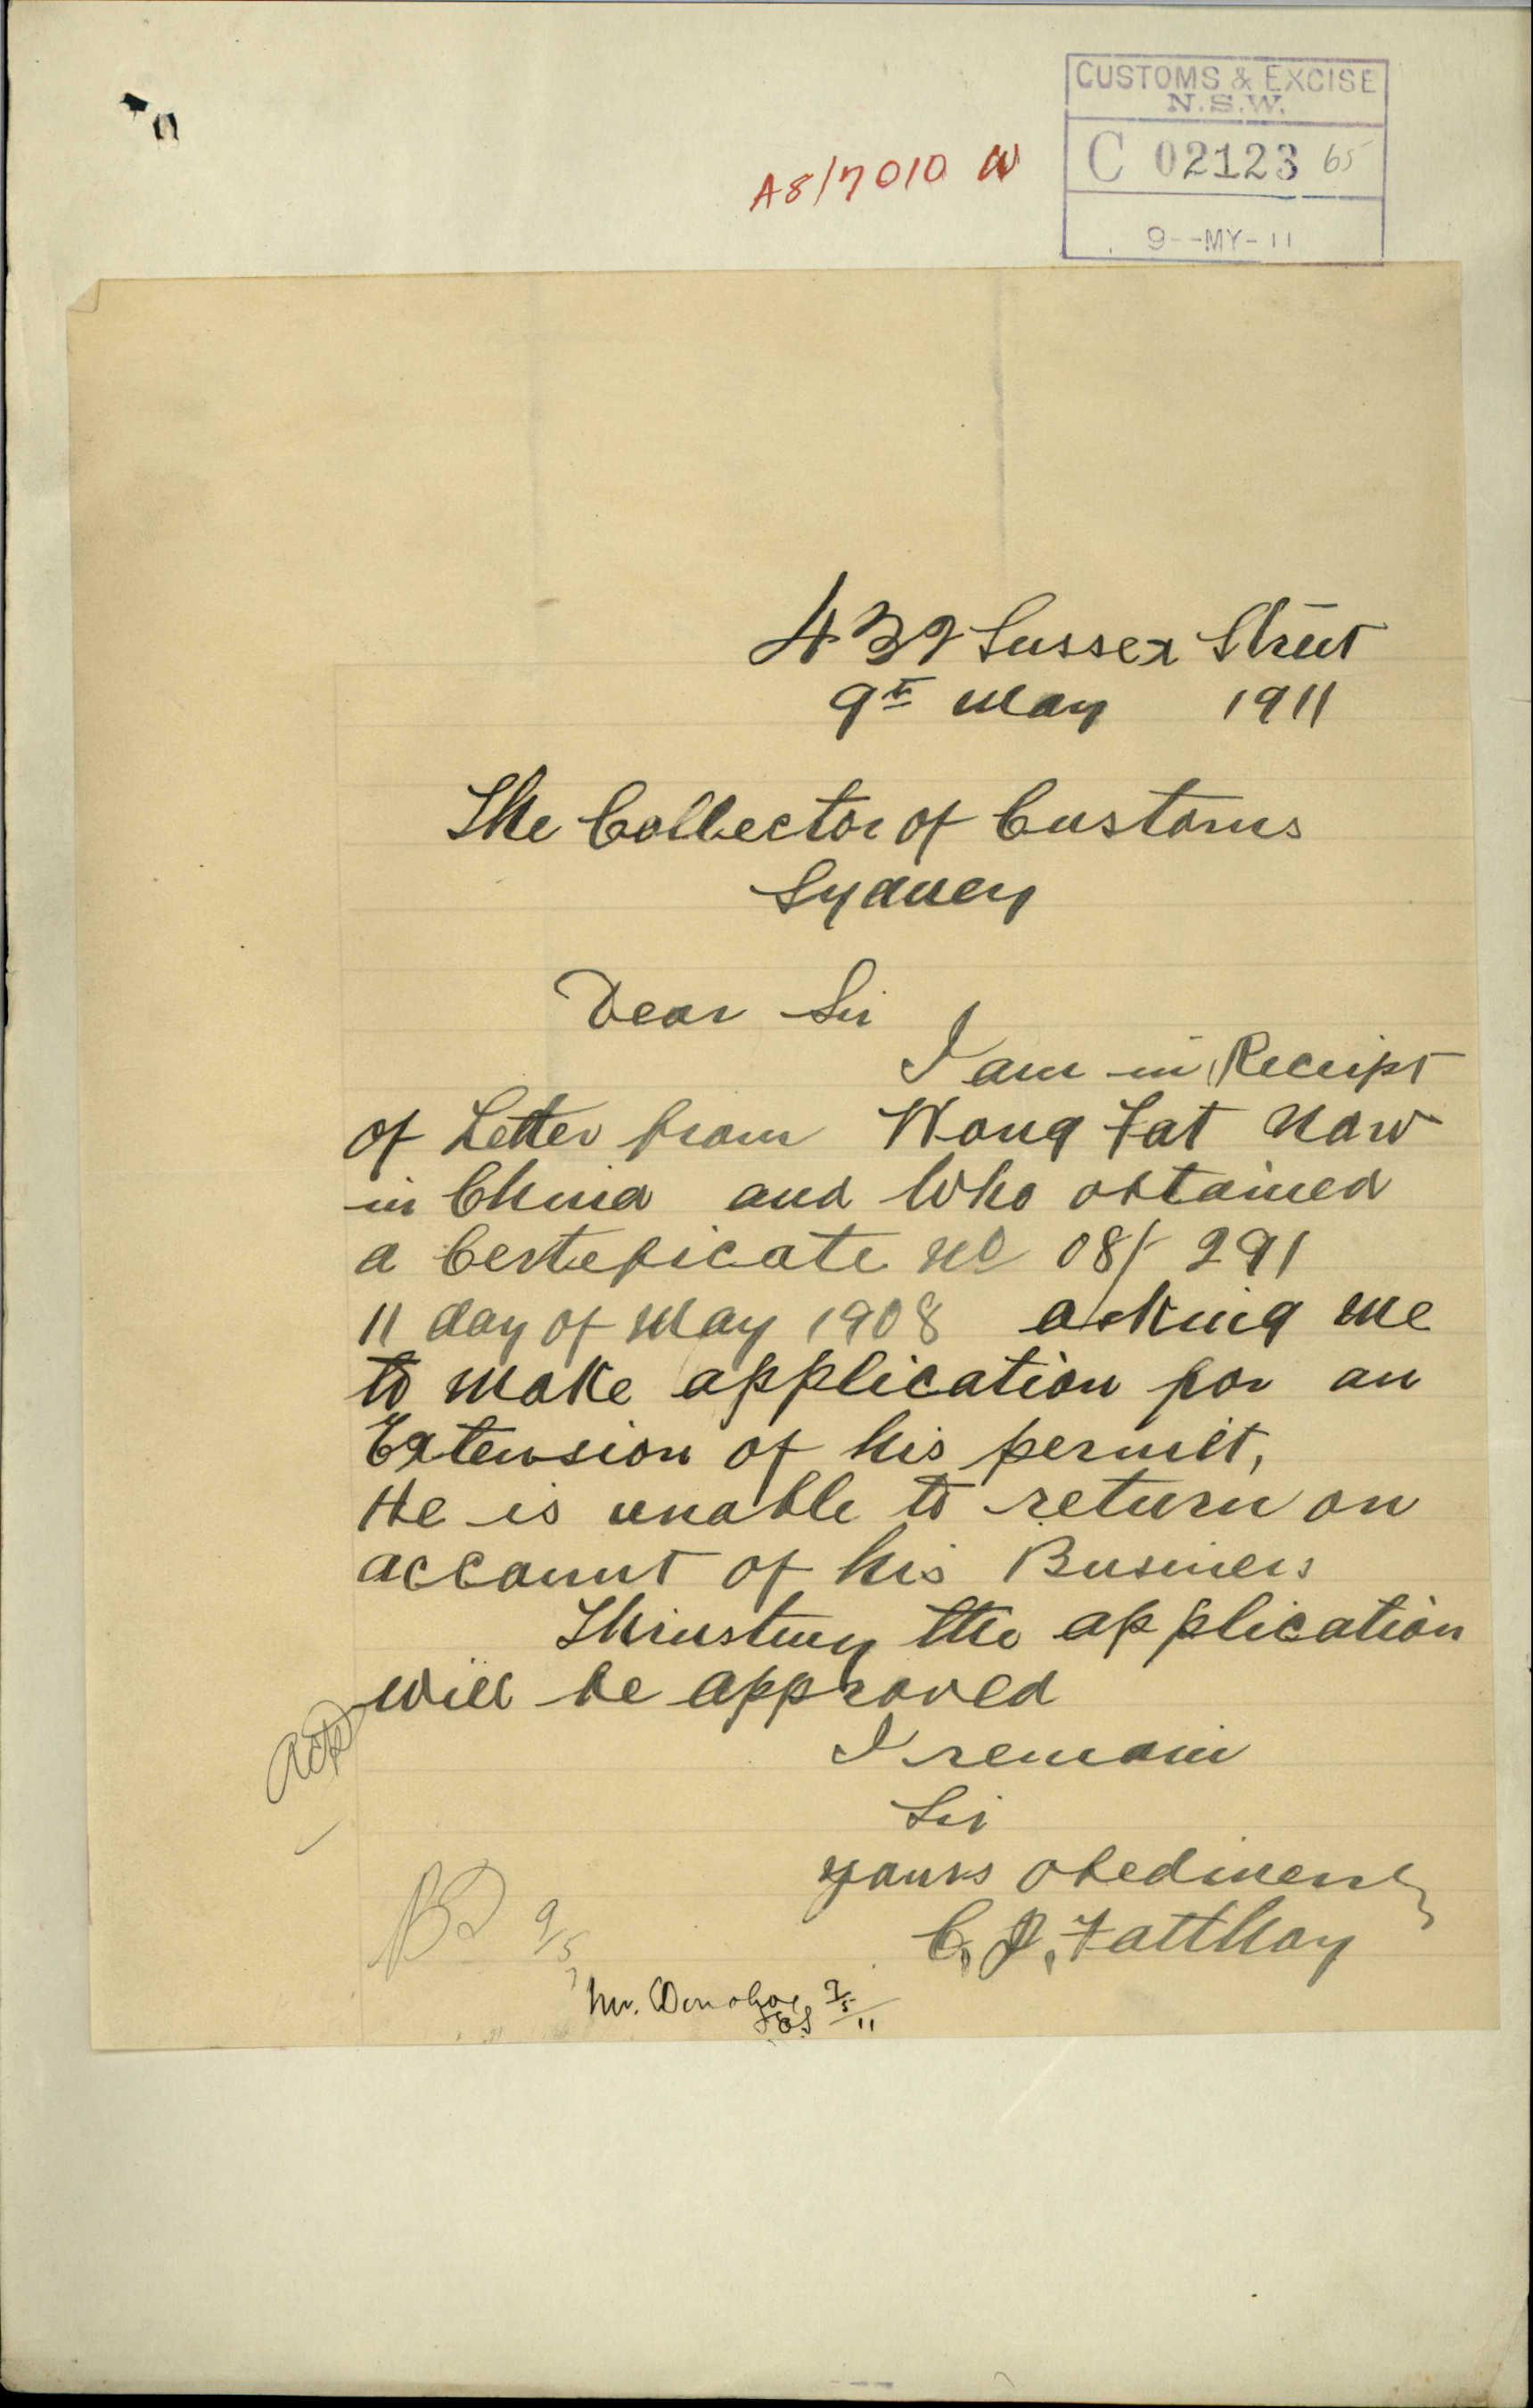 CUSTOMS & EXCISE
N.S.W.
C 02123 65
9--MY-11
A8/7010 W
432 Sussex Street
9th May 1911
The Collector of Customs
Sydney
Dear Sir
I am in Receipt
of Letter from Wong Fat Now
in China and Who obtained
a Certeficate No 08/- 291
11 day of May 1908 asking me
to make application for an
Extension of his permit,
He is unable to return on
account of his Business
Thrusting the application
will be approved
I remain
Sir
yours obedinently
C. J. Fatthoy
Ack
9/5
Mr. Donohoe 9/5/11